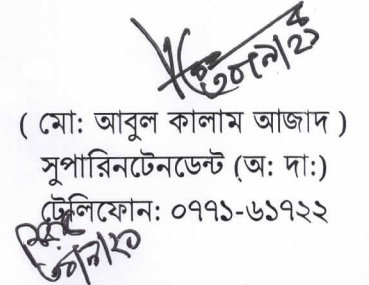 ৩০/৯/২১
( মো: আবুল কালাম আজাদ )
সুপারিনটেনডেন্ট (অ: দা:)
টেলিফোন: ০৭৭১-৬১৭২২